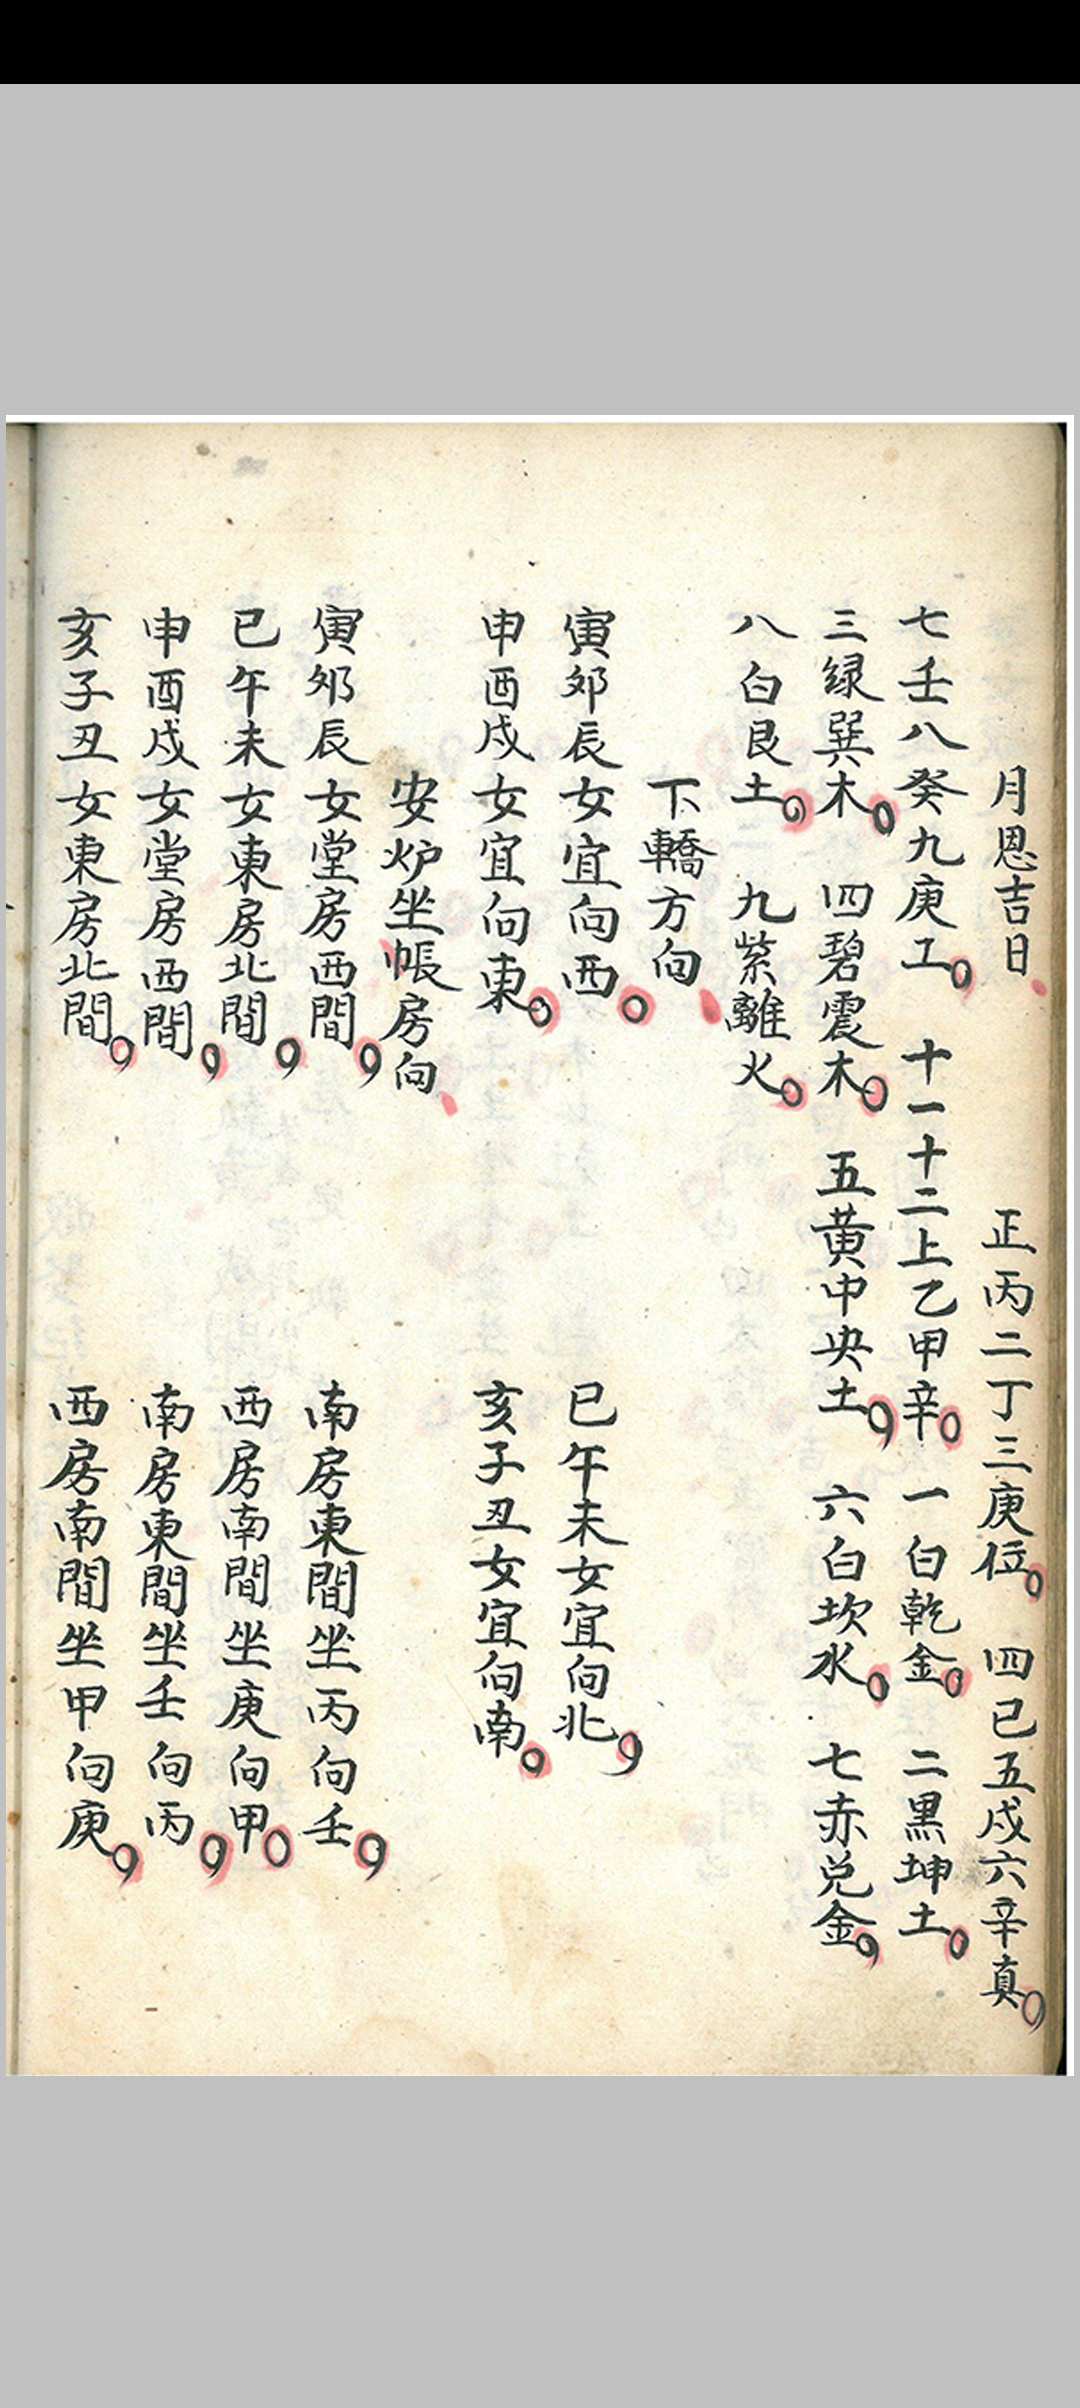 月恩吉日 正丙二丁三庚位 四己五戍六辛真
七壬八癸九庚工 十一十二上乙甲辛 一白乾金 二黒坤土
三绿巽木 四碧震木 五黄中央土 六白坎水 七赤兑金
八白艮土 九紫離火
下轎方向
寅夘辰女宜向西 巳午未女宜向北
申酉戍女宜向東 亥子丑女宜向南
安炉坐帳房向
寅夘辰女堂房西間 南房東間坐丙向壬
巳午未女東房北間 西房南間坐庚向甲
申酉戍女堂房西間 南房東間坐壬向丙
亥子丑女東房北間 西房南間坐甲向庚